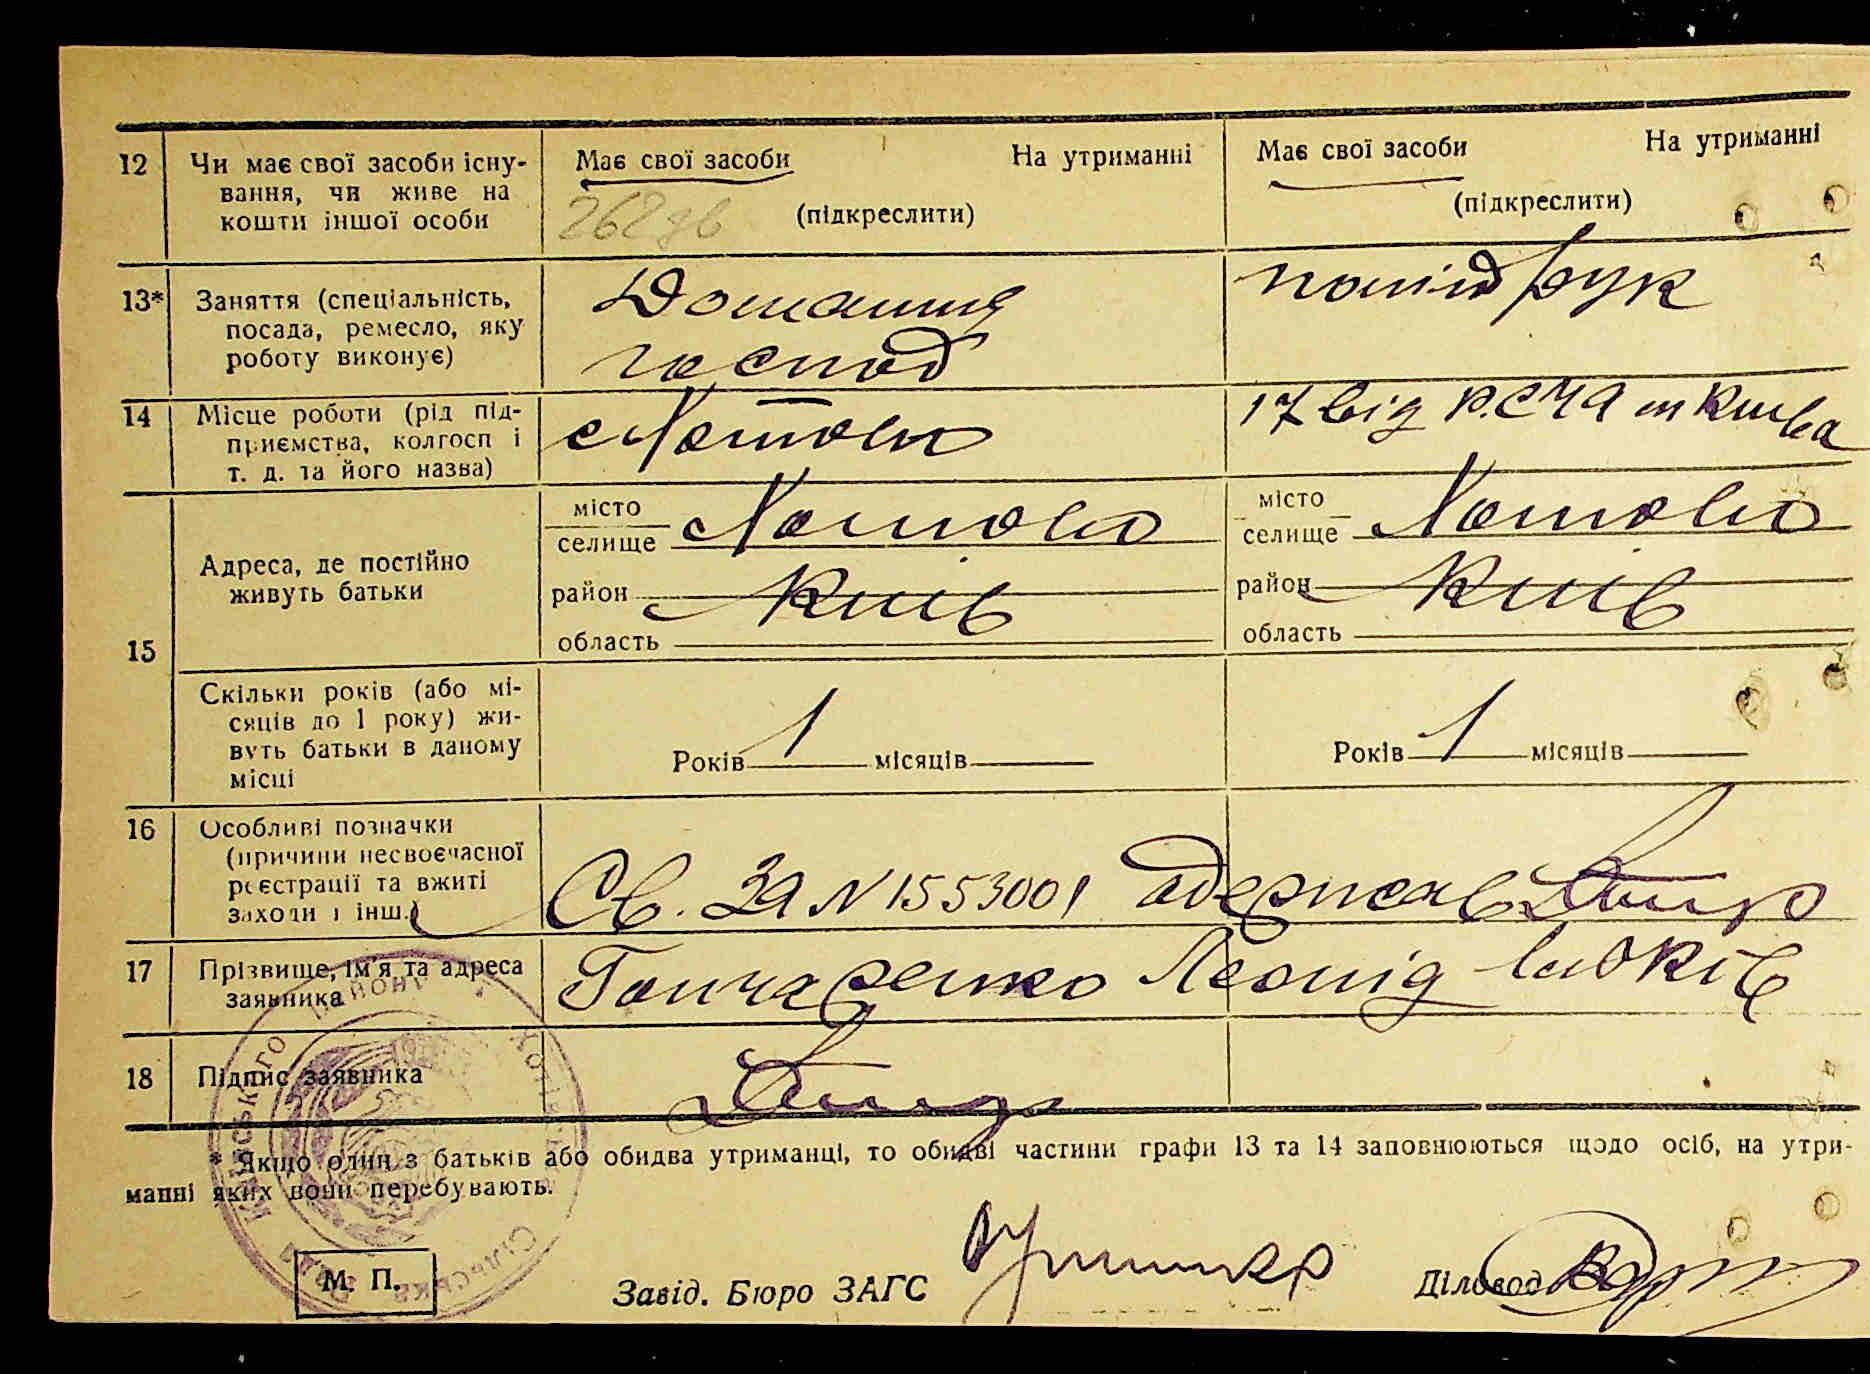 12 Чи має свої засоби існу-
вання, чи живе на
кошти іншої особи
Має свої засоби На утриманні
(підкреслити)
Має свої засоби На утриманні
(підкреслити)
13* Заняття (спеціальність,
посада, ремесло, яку
роботу виконує)
Домашня
господ
політрук
14 Місце роботи (рід під-
приємства, колгосп і
т. д. та його назва)
с Хотові
17 від Р.С.Ч.А м Києва
15 Адреса, де постійно
живуть батьки
місто
селище с Хотово
район Київ
область
місто
селище с Хотово
район Київ
область
Скільки років (або мі-
сяців до 1 року) жи-
вуть батьки в даному
місці
Років 1 місяців
Років 1 місяців
16 Особливі позначки
(причини несвоєчасної
реєстрації та вжиті
заходи і інш.)
Св. ЗА N 1553001 одержав
17 Прізвище, ім'я та адреса
заявника
Гончаренко Леонід
18 Підпис заявника
* Якщо один з батьків або обидва утриманці, то обидві частини графи 13 та 14 заповнюються щодо осіб, на утри-
манні яких вони перебувають.
М. П.
Завід. Бюро ЗАГС
Діловод